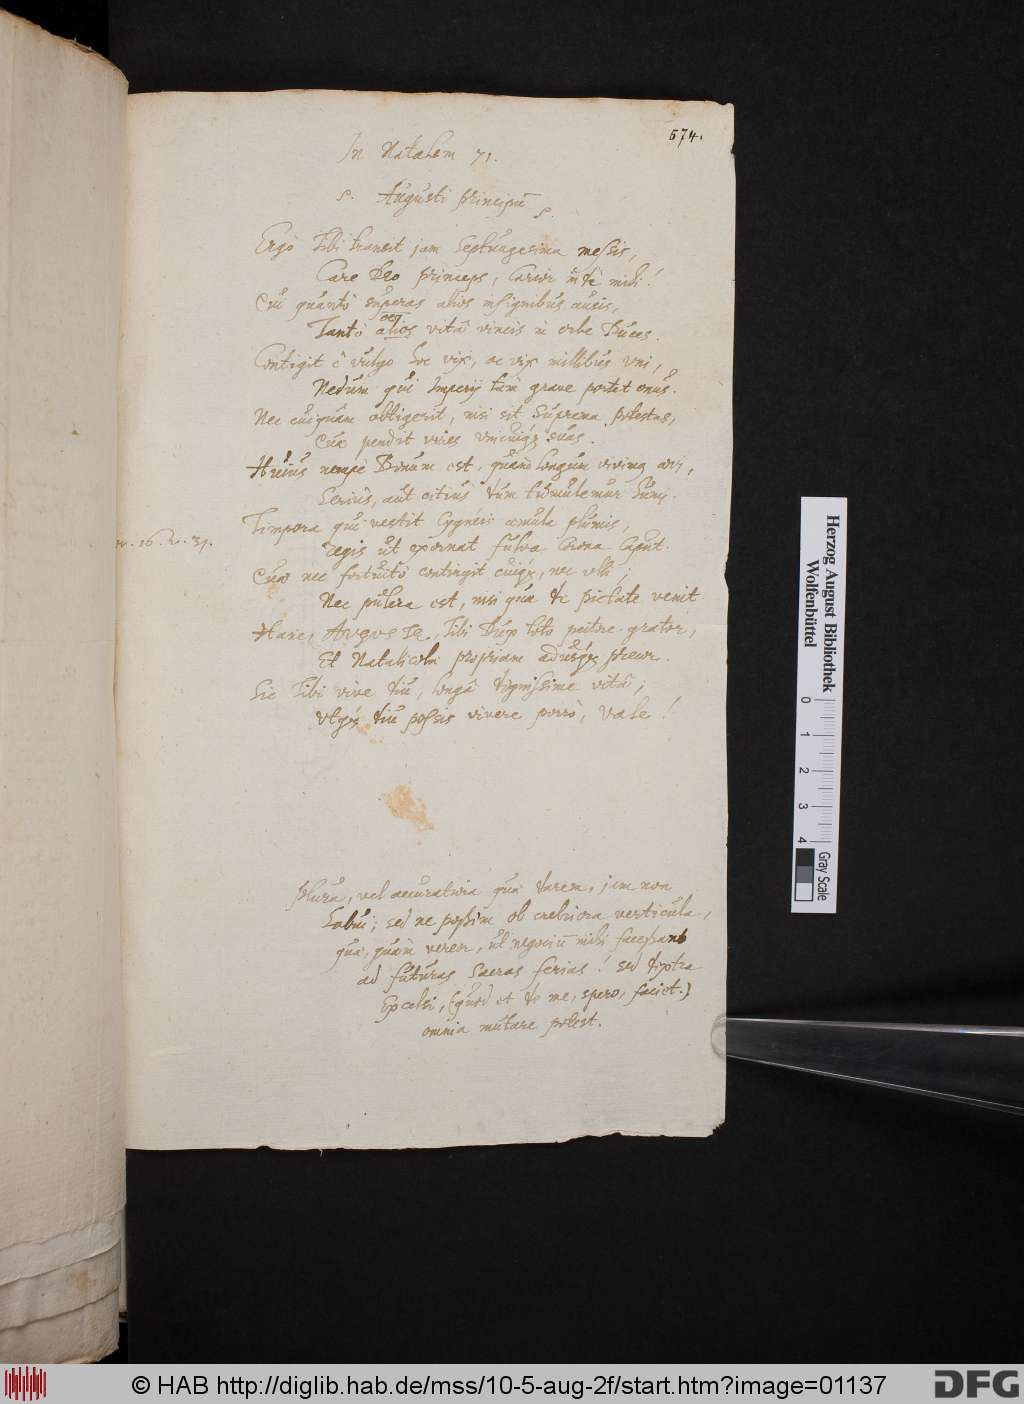 574.
In Natalem 71.
S. Augusti Principū
S.
Ergò Tibi transit jam septuagesima messis,
Care Deo Princeps, carior mihi!
Cū quantò superas alios insignibus ausis,
Tantò alios vitâ vincis in orbe Duces.
Contigit è vulgo hoc vix, ac vix millibus uni,
Nedum qui Imperij tàm grave portet onus.
Nec cuiquàm obtigerit, nisi sit suprema potestas,
Quæ pendit vires unicuiq; suas.
Huius nempè Bonum est, quàm longum
Seriùs, aut citiùs tùm tumulemur
Tempora qui vestit Cygneis æmula plumis,
Regis ut exornat fulva Corona Caput.
Quæ nec fortuitò contingit cuiq;, nec ulli;
Nec pulcra est, nisi quæ de pietate venit.
Hanc, AUGUSTE, Tibi Dux toto pectore grator,
Et Natalicola propriam adusq; precor.
Sic Tibi vive diu, longâ dignissime vitâ;
Utq; diu possis vivere porrò, Vale!
Plura, vel accuratiora quæ darem, jam non
habui; sed ne possim ob crebriora verticula,
quæ, quàm vereor, ut negociū mihi facessant
ad futuras sacras ferias! sed dextra
Excelsi, (quod et de me, spero, faciet.)
omnia mutare potest.
Herzog August Bibliothek
Wolfenbüttel
0 1 2 3 4
Gray Scale
© HAB http://diglib.hab.de/mss/10-5-aug-2f/start.htm?image=01137
DFG